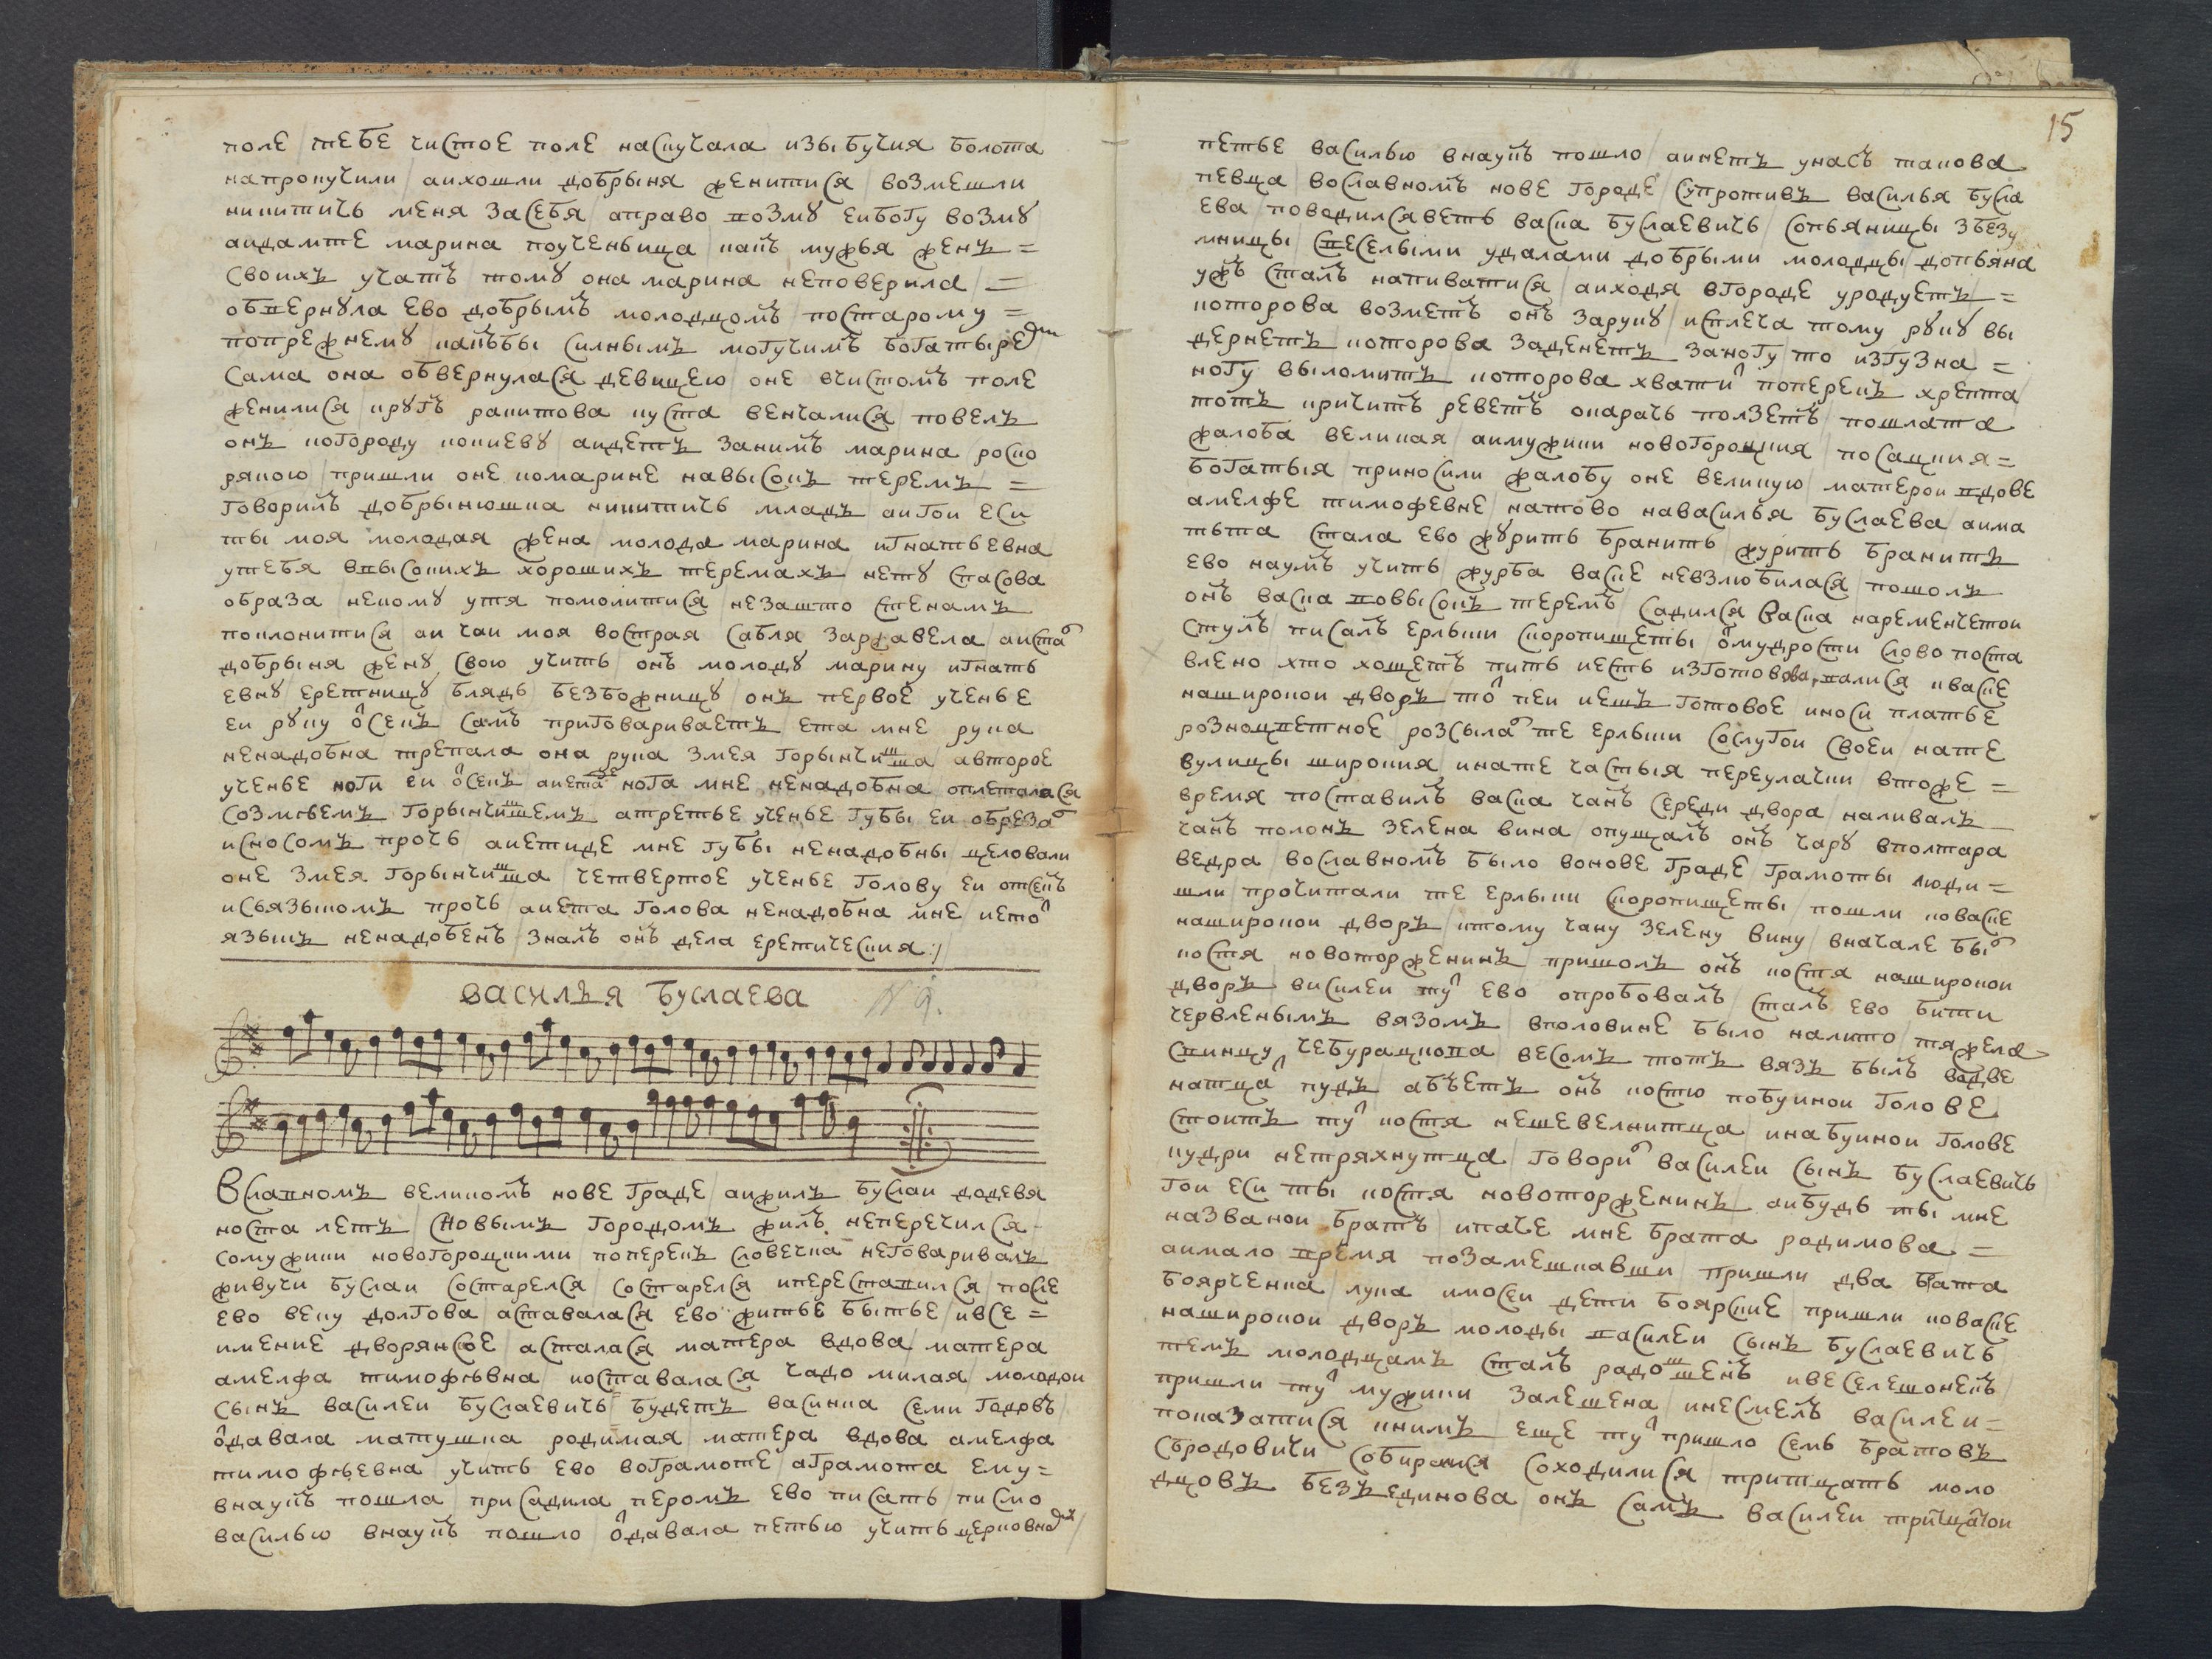 поле / тебе чистое поле наскучала изыбучия болота
напрокучили / аихошли добрыня женитися / возмешли
никитичь меня засебя / аправо возмȣ еибогу возмȣ
аидамте марина поученьица / какъ мужья женъ =
своихъ учатъ томȣ она марина неповерила / =
обвернȣла ево добрымъ молодцомъ постарому =
попрежнемȣ какъбы силнымъ могучимъ богатырем
сама она обвернулася девицею / оне вчистомъ поле
женилися / крȣгъ ракитова куста венчалися / повелъ
онъ погороду покиевȣ / аидетъ занимъ марина роско
рякою / пришли оне комарине навысокъ теремъ =
говорилъ добрынюшка никитичь младъ / аигои еси
ты моя молодая жена / молода марина игнатьевна
утебя ввысокихъ хорошихъ теремахъ нетȣ спасова
образа / некомȣ утя помолитися / незашто стенамъ
поклонитися / аи чаи моя вострая сабля заржавела / аистал
добрыня женȣ свою учить / онъ молодȣ марину игнать
евнȣ / еретницȣ блядь безбожницȣ / онъ первое ученье
еи рȣку ѿсекъ / самъ приговариваетъ / ета мне рука
ненадобна / трепала она рука змея горынчища / авторое
ученье ноги еи ѿсекъ / аиета де нога мне ненадобна / оплеталася
созмиемъ горынчищемъ / атретье ученье губы еи обрезал
исносомъ прочь / аиетиде мне губы ненадобны / целовали
оне змея горынчища / четвертое ученье голову еи отсекъ
исъязыкомъ прочь / аиета голова ненадобна мне / иетот
языкъ ненадобенъ / зналъ онъ дела еретическия :/
василья буслаева № 9.
Вславномъ великомъ нове граде / аижилъ буслаи додевя
носта летъ / сновымъ городомъ жилъ неперечился
сомужики новогороцкими поперекъ словечка неговаривалъ
живучи буслаи состарелся / состарелся ипереставился / после
ево веку долгова / аставалася ево житье бытье / ивсе =
имение дворянское / асталася матера вдова / матера
амелфа тимофѣвна / иоставалася чадо милая / молодои
сынъ василеи буслаевичь / будетъ васинка семи годовъ
ѿдавала матушка родимая / матера вдова амелфа
тимофѣевна / учить ево вограмоте / аграмота ему =
внаукъ пошла / присадила перомъ ево писать / писмо
василью внаукъ пошло / ѿдавала петью учить церковному /
15
петье василью внаукъ пошло / аинетъ унасъ такова
певца / вославномъ нове городе / супротивъ василья бусла
ева / поводилсяветь васка буслаевичь / сопьяницы збезу
мницы / свеселыми удалами добрыми молодцы / допьяна
ужъ сталъ напиватися / аиходя вгороде уродуетъ / =
которова возметъ онъ зарукȣ / исплеча тому рȣкȣ вы
дернетъ / которова заденетъ заногу / то изгузна =
ногу выломитъ / которова хватит поперекъ хрепта /
тотъ кричитъ реветъ окарачь ползетъ / пошлата
жалоба великая / аимужики новогороцкия / посацкия =
богатыя / приносили жалобу оне великую / матерои вдове
амелфе тимофевне / натово навасилья буслаева / аима
тьта стала ево жȣрить бранить / журить бранить
ево наумъ учить / журба васке невзлюбилася / пошолъ
онъ васка вовысокъ теремъ / садился васка наременчетои
стулъ / писалъ ерлыки скорописчеты / ѿмудрости слово поста
влено / хто хощетъ пить иесть изготовова, валися квaске
наширокои дворъ / тот пеи иешь готовое / иноси платье
розноцветное / розсылал те ерлыки сослугои своеи / нате
вулицы широкия / инате частыя переулачки / втоже =
время поставилъ васка чанъ середи двора / наливалъ
чанъ полонъ зелена вина / опущалъ онъ чарȣ вполтара
ведра / вославномъ было вонове граде / грамоты люди =
шли / прочитали те ерлыки скорописчеты / пошли ковaске
наширокои дворъ / ктому чану зелену вину / вначале был
костя новоторженинъ / пришолъ онъ костя наширокои
дворъ / василеи тут ево опробовалъ / сталъ ево бити
червленымъ вязомъ / вполовине было налито / тяжела
свинцу чебурацкова / весомъ тотъ вязъ былъ водве
натцат пудъ / абъетъ онъ костю побуинои голове
стоитъ тут костя нешевелнитца / инабуинои голове
кудри нетряхнутца / говорил василеи сынъ буслаевичь
гои еси ты костя новоторженинъ / аибудь ты мне
названои братъ / ипаче мне брата родимова =
аимало время позамешкавши / пришли два брата
боярченка / лука имосеи дети боярские / пришли коваске
наширокои дворъ / молоды василеи сынъ буслаевичь
темъ молодцамъ сталъ радошенъ ивеселешонекъ
пришли тут мужики залешена / инесмелъ василеи =
показатися книмъ / еще тут пришло семь братовъ
сбродовичи / собиралися соходилися / тритцать моло
дцовъ безъединова / онъ самъ василеи тритцатои